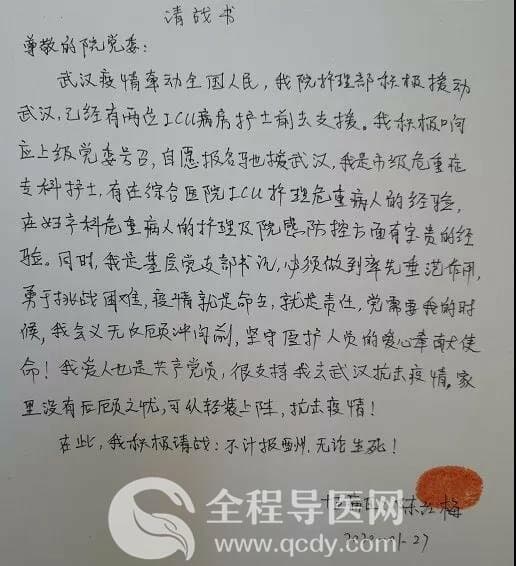 请战书
尊敬的院党委：
武汉疫情牵动全国人民，我院护理部积极援动
武汉，已经有两位ICU病房护士前去支援。我积极响
应上级党委号召，自愿报名驰援武汉，我是市级危重症
专科护士，有在综合医院ICU护理危重病人的经验，
在妇产科危重病人的护理及院感防控方面有宝贵的经
验。同时，我是基层党支部书记，必须做到率先垂范作用，
勇于挑战困难，疫情就是命令，就是责任，党需要我的时
候，我会义无反顾冲向前，坚守医护人员的爱心奉献大使
命！我爱人也是共产党员，很支持我去武汉抗击疫情。家
里没有后顾之忧，可以轻装上阵，抗击疫情！
在此，我积极请战：不计报酬，无论生死！
朱红梅
2020-01-27
全程导医网
www.qcdy.com